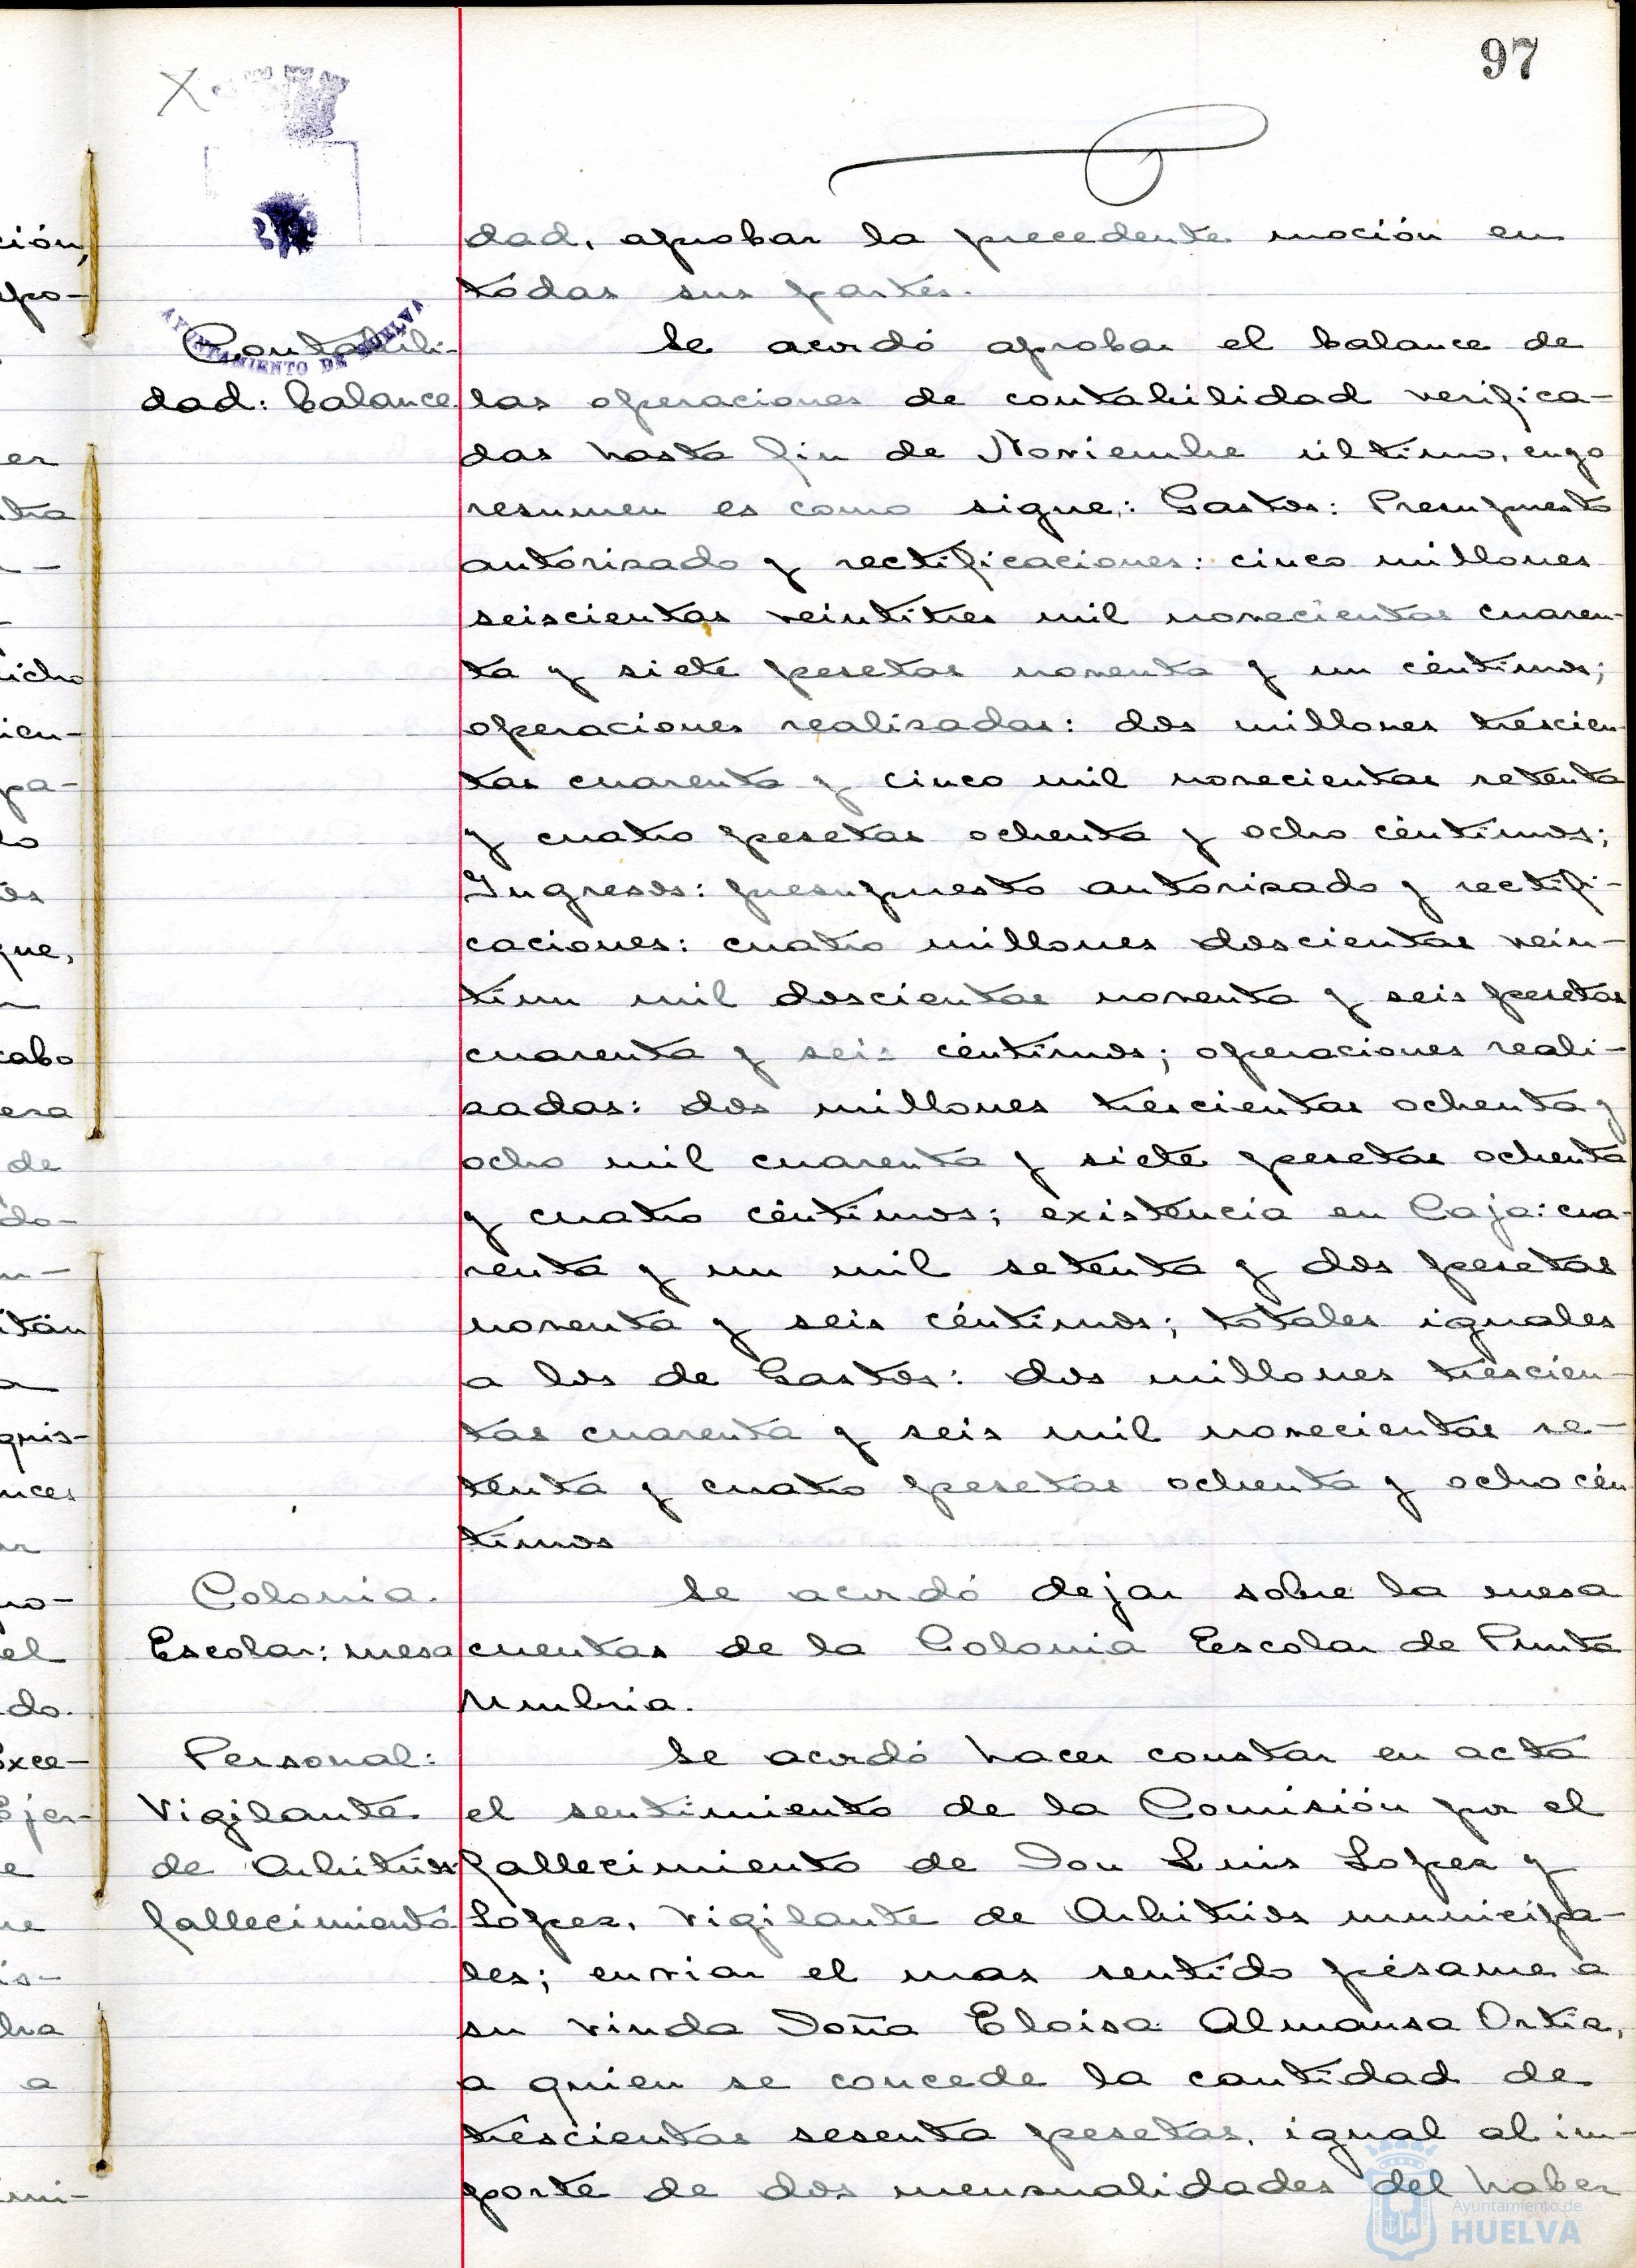 97
dad, aprobar la precedente moción en
todas sus partes.
AYUNTAMIENTO DE HUELVA
Contabili-
dad: balance.
Se acordó aprobar el balance de
las operaciones de contabilidad verifica-
das hasta fin de Noviembre último, cuyo
resumen es como sigue: Gastos: Presupuesto
autorizado y rectificaciones: cinco millones
seiscientas veintitres mil novecientas cuaren-
ta y siete pesetas noventa y un céntimos;
operaciones realizadas: dos millones trescien-
tas cuarenta y cinco mil novecientas setenta
y cuatro pesetas ochenta y ocho céntimos;
Ingresos: presupuesto autorizado y rectifi-
caciones: cuatro millones doscientas vein-
tiun mil doscientas noventa y seis pesetas
cuarenta y seis céntimos; operaciones reali-
zadas: dos millones trescientas ochenta y
ocho mil cuarenta y siete pesetas ochenta
y cuatro céntimos; existencia en Caja: cua-
renta y un mil setenta y dos pesetas
noventa y seis céntimos; totales iguales
a los de Gastos: dos millones trescien-
tas cuarenta y seis mil novecientas se-
tenta y cuatro pesetas ochenta y ocho cén
timos
Colonia.
Escolar: mesa
Se acordó dejar sobre la mesa
cuentas de la Colonia Escolar de Punta
Umbria.
Personal:
Vigilante.
de Arbitrios
fallecimiento
Se acordó hacer constar en acta
el sentimiento de la Comisión por el
fallecimiento de Don Luis Lopez y
Lopez, Vigilante de Arbitrios municipa-
les; enviar el mas sentido pésame a
su viuda Doña Eloisa Almansa Ortiz,
a quien se concede la cantidad de
trescientas sesenta pesetas, igual al im-
porte de dos mensualidades del haber
Ayuntamiento de
HUELVA